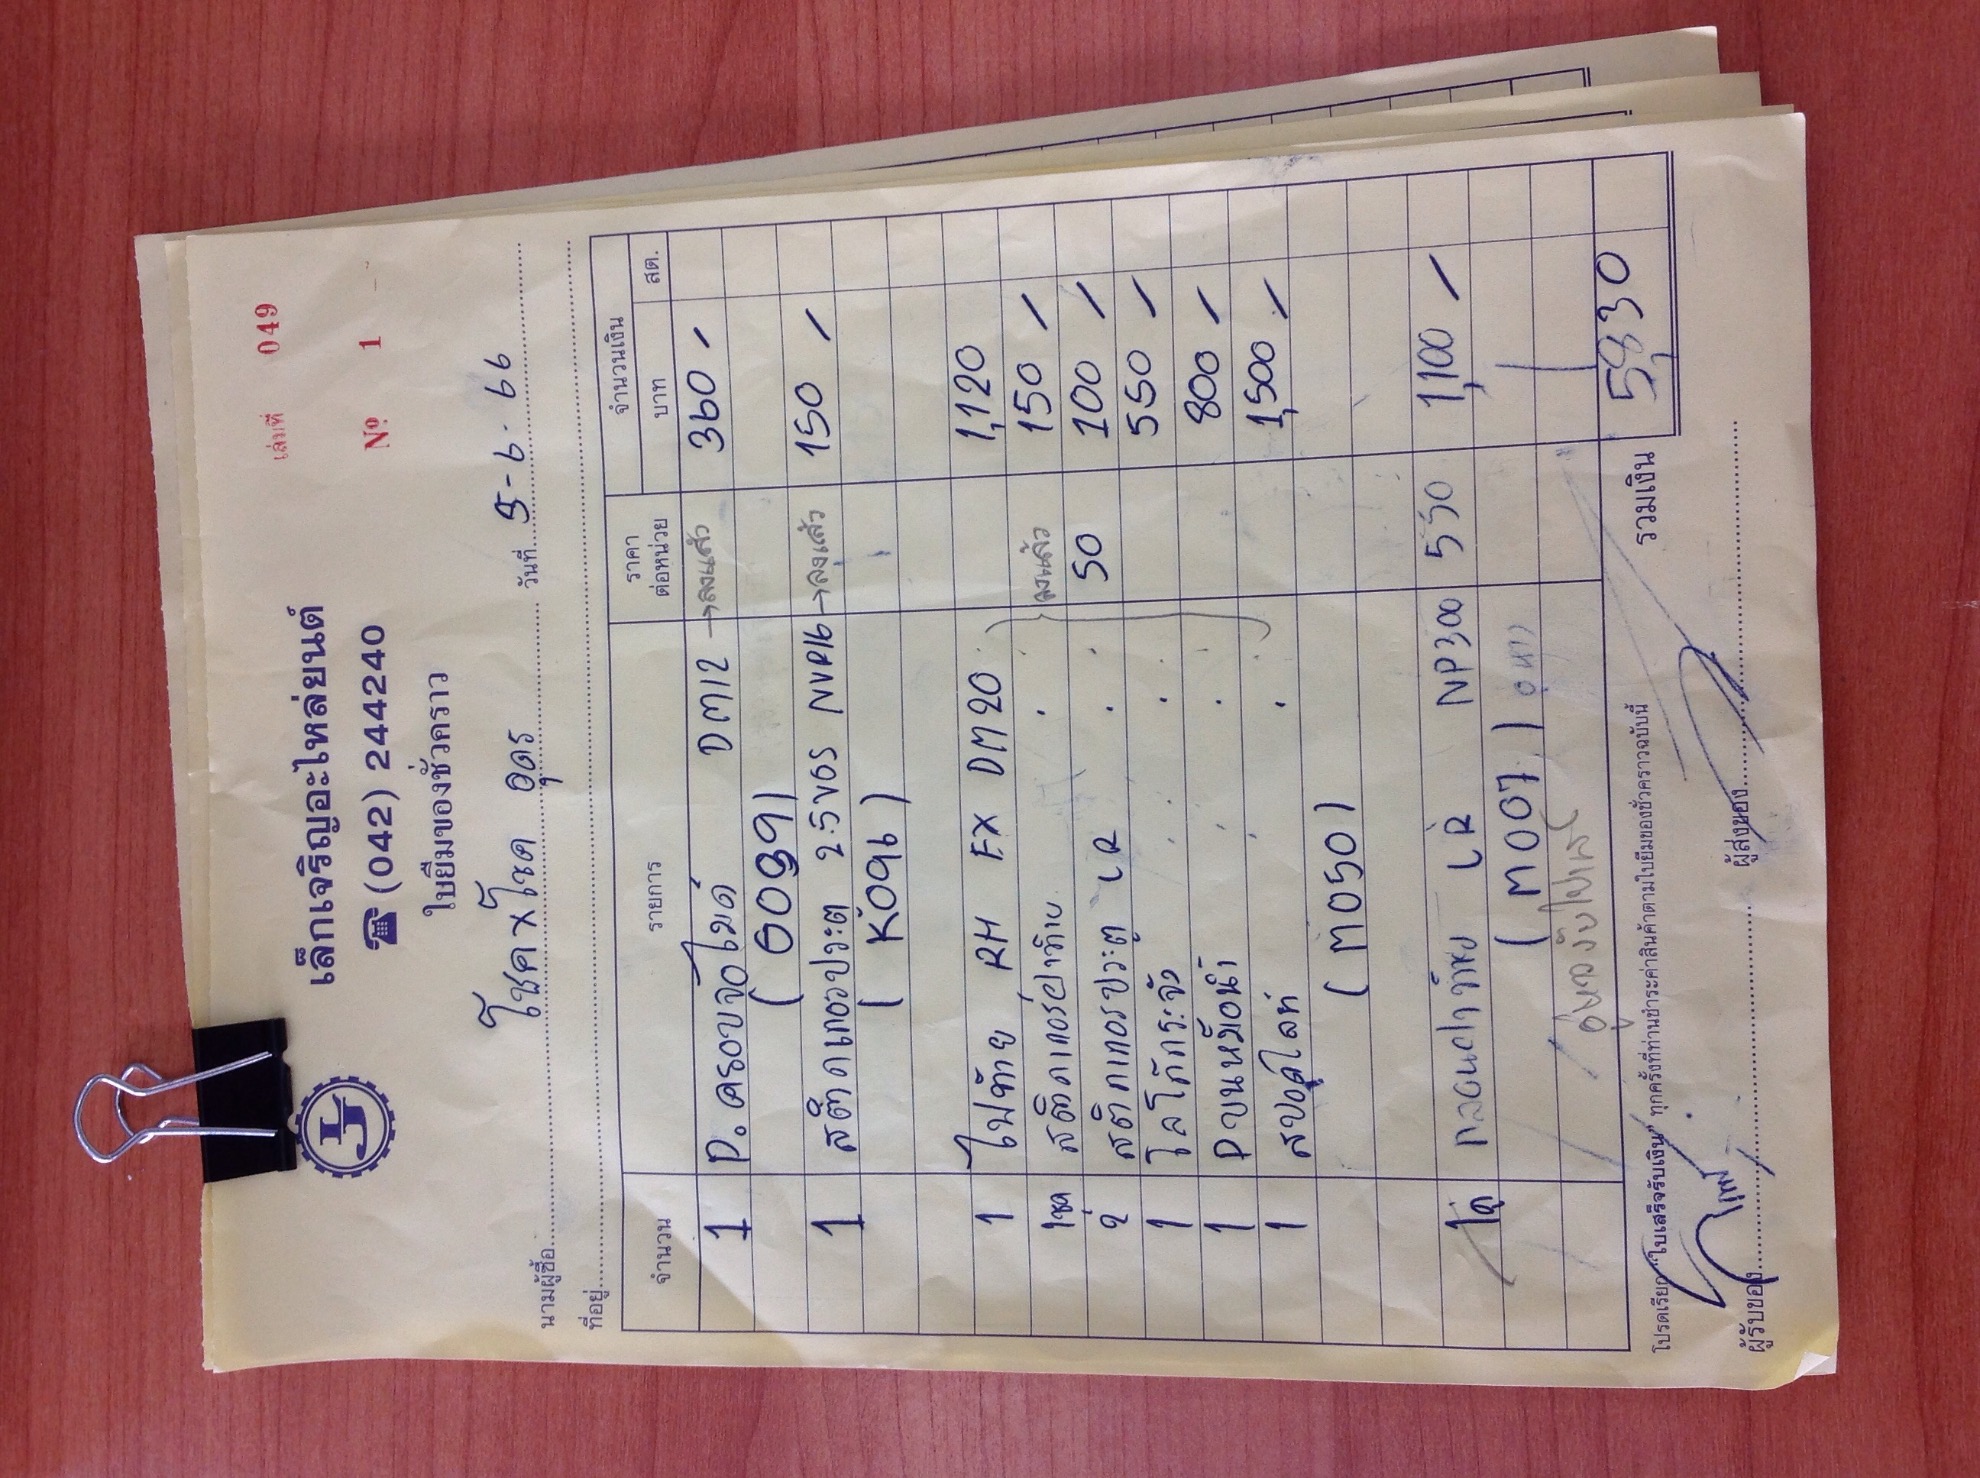 เล่มที่ 049
เล็กเจริญอะไหล่ยนต์
☎ (042) 244240
Nº 1
ใบยืมของชั่วคราว
นามผู้ซื้อ โชคxโชค อุดร วันที่ 9-6-66
ที่อยู่
จำนวน รายการ ราคาต่อหน่วย จำนวนเงิน
บาท สต.
1 P.ครอบจับไมด์ DM12 →ลงแล้ว 360 /
(G039)
1 สติ๊กเกอร์ประตู 2.5 VGS NVR16 →ลงแล้ว 150 /
(K096)
1 ไฟท้าย RH EX DM20 1,120
1ชุด สติ๊กเกอร์ฝาท้าย " ลงแล้ว 150 /
2 สติกเกอร์ประตู LR " 50 100 /
1 โลโก้กระจัง " 550 /
1 Pบนหม้อน้ำ " 800 /
1 สปอตไลท์ " 1,500 /
(M050)
1คู่ กลอนฝาท้าย LR NP300 550 1,100 /
(M007)
รวมเงิน 5,830
โปรดเรียก "ใบเสร็จรับเงิน" ทุกครั้งที่ท่านชำระค่าสินค้าตามใบยืมของชั่วคราวฉบับนี้
ผู้รับของ ผู้ส่งของ